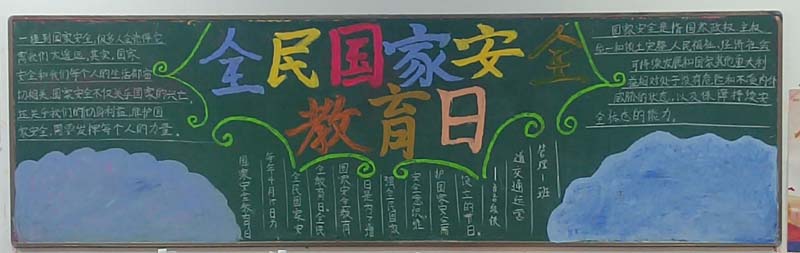 全民国家安全
教育日
一提到国家安全,很多人会觉得它
离我们太遥远,其实,国家
安全和我们每个人的生活都密
切相关,国家安全不仅关乎国家的兴亡,
还关乎我们的切身利益,维护国
家安全,需要发挥每个人的力量。
国家安全是指国家政权、主权、
统一和领土完整、人民福祉、经济社会
可持续发展和国家其他重大利
益相对处于没有危险和不受内外
威胁的状态,以及保障持续安
全状态的能力。
管理一班
道交通运营
设立的节日。
护国家安全而
安全意识维
强全民国家
日是为了增
国家安全教育
全教育日全民
全民国家安
每年4月15日为
国家安全教育日